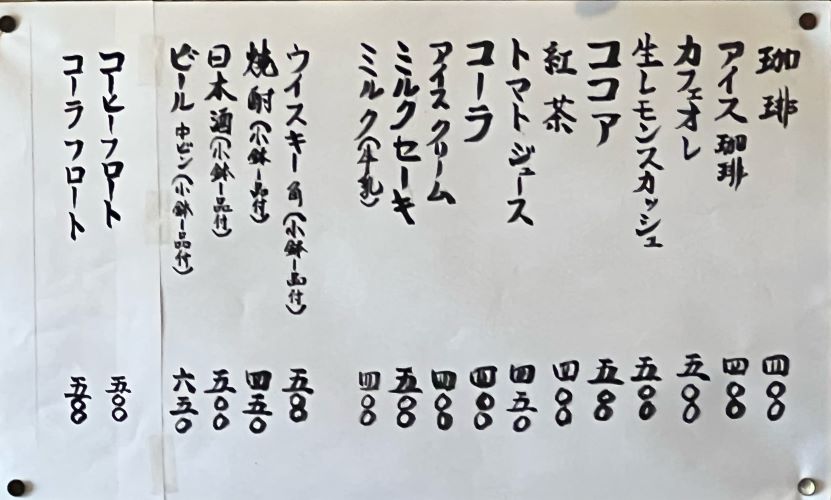 珈琲 四〇〇
アイス珈琲 四〇〇
カフェオレ 五〇〇
生レモンスカッシュ 五〇〇
ココア 五〇〇
紅茶 四〇〇
トマトジュース 四五〇
コーラ 四〇〇
アイスクリーム 四〇〇
ミルクセーキ 五〇〇
ミルク(牛乳) 四〇〇
ウイスキー角(小鉢一品付) 五〇〇
焼酎(小鉢一品付) 四五〇
日本酒(小鉢一品付) 五〇〇
ビール 中ビン(小鉢一品付) 六五〇
コーヒーフロート 五〇〇
コーラフロート 五〇〇